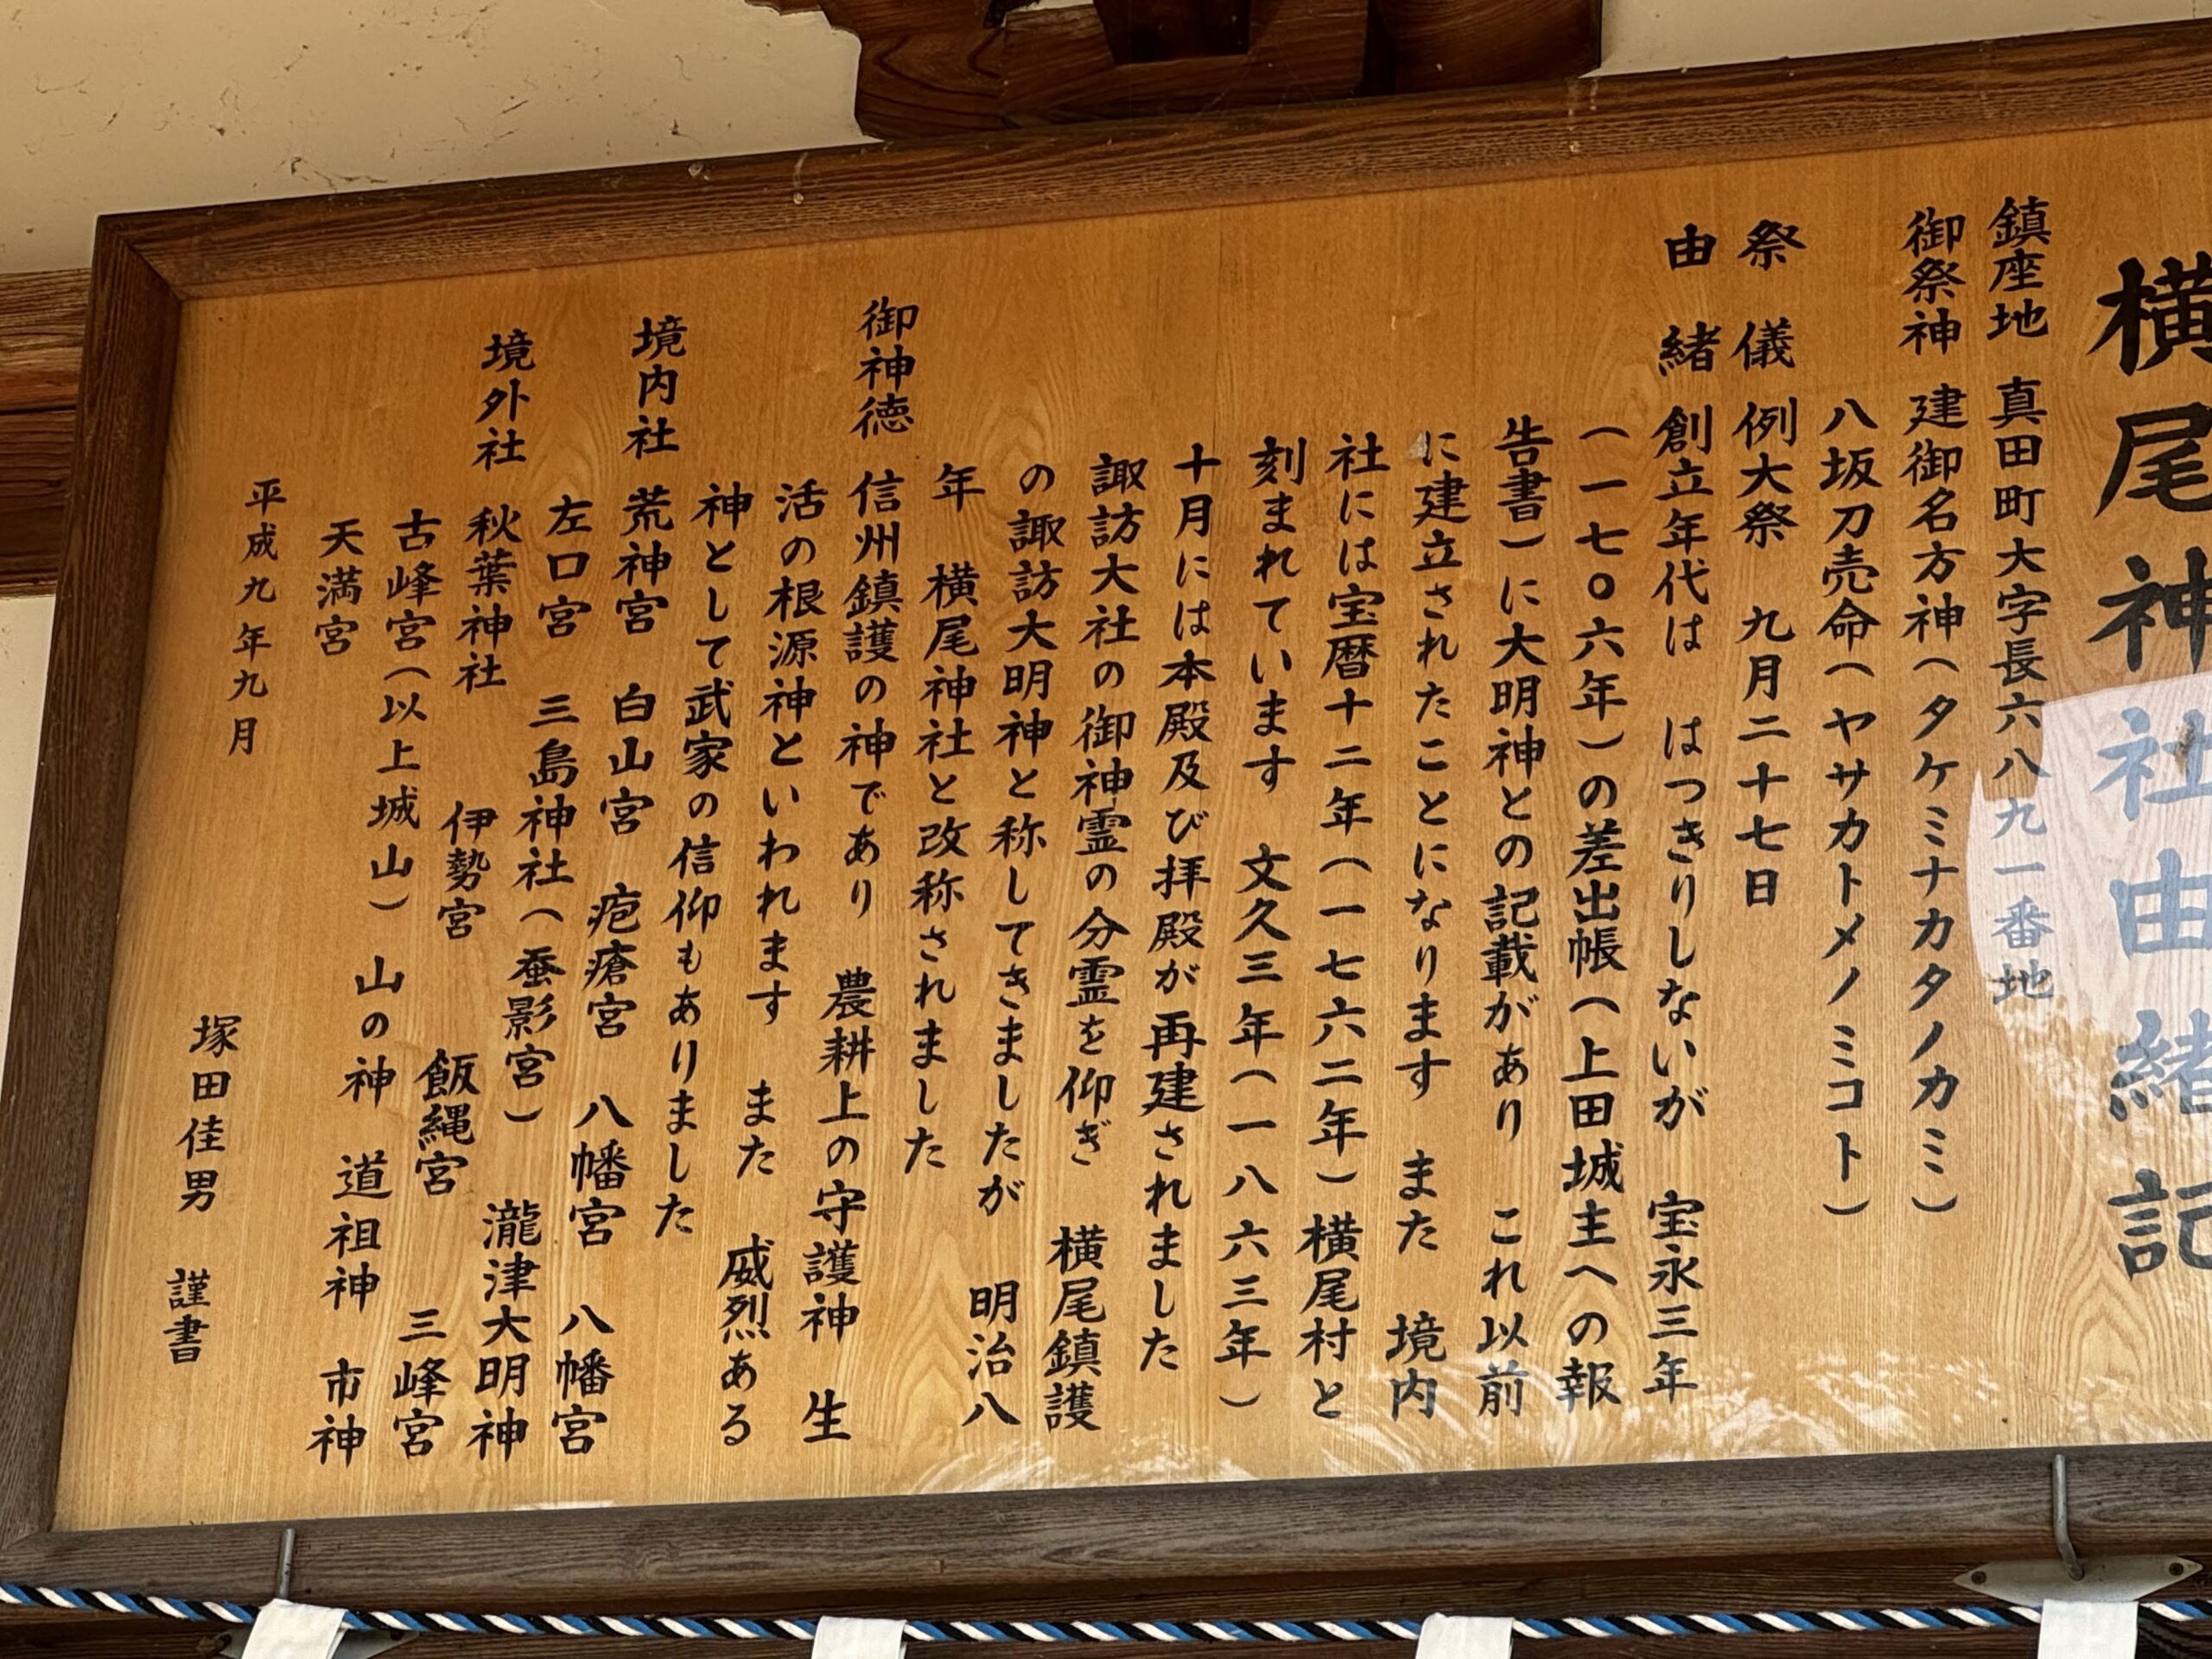 横尾神社由緒記
鎮座地 真田町大字長六八九一番地
御祭神 建御名方神(タケミナカタノカミ)
八坂刀売命(ヤサカトメノミコト)
祭儀 例大祭 九月二十七日
由緒 創立年代は はつきりしないが 宝永三年
(一七〇六年)の差出帳(上田城主への報
告書)に大明神との記載があり これ以前
に建立されたことになります また 境内
社には宝暦十二年(一七六二年)横尾村と
刻まれています 文久三年(一八六三年)
十月には本殿及び拝殿が再建されました
諏訪大社の御神霊の分霊を仰ぎ 横尾鎮護
の諏訪大明神と称してきましたが 明治八
年 横尾神社と改称されました
御神徳 信州鎮護の神であり 農耕上の守護神 生
活の根源神といわれます また 威烈ある
神として武家の信仰もありました
境内社 荒神宮 白山宮 疱瘡宮 八幡宮 八幡宮
左口宮 三島神社(蚕影宮) 瀧津大明神
境外社 秋葉神社 伊勢宮 飯縄宮 三峰宮
古峰宮(以上城山) 山の神 道祖神 市神
天満宮
平成九年九月
塚田佳男 謹書